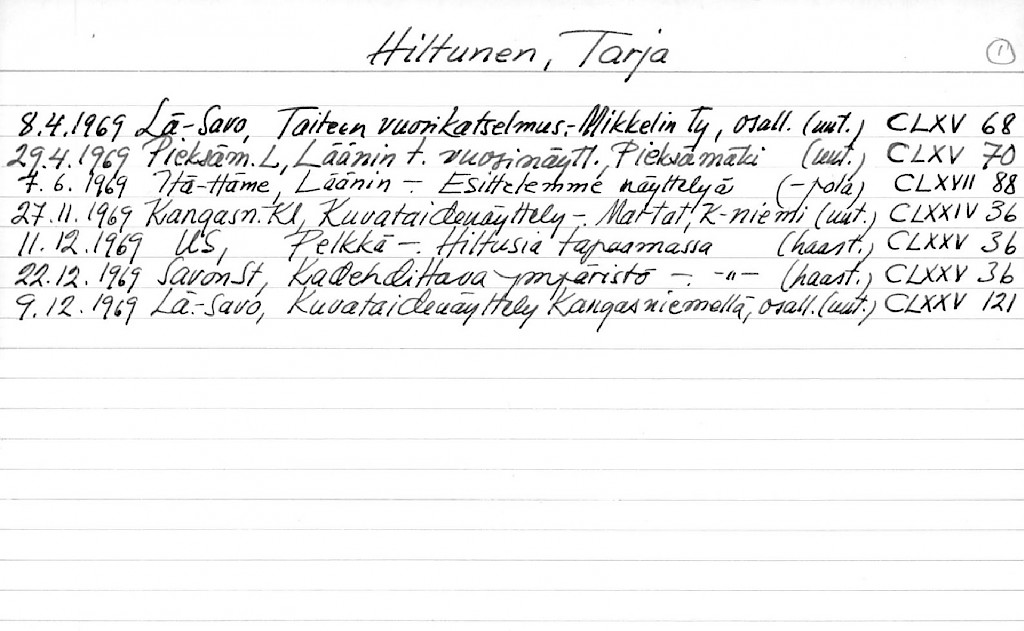 Hiltunen, Tarja 1
8.4.1969 Lä-Savo, Taiteen vuosikatselmus,- Mikkelin Ty, osall. (uut.) CLXV 68
29.4.1969 Pieksäm. L, Läänin t. vuosinäytt., Pieksämäki (uut.) CLXV 70
7.6.1969 Itä-Häme, Läänin -. Esittelemme näyttelyä (-pola) CLXVII 88
27.11.1969 Kangasn. Kl, Kuvataidenäyttely -. Mattat, K-niemi (uut.) CLXXIV 36
11.12.1969 US, Pelkkä -. Hiltusia tapaamassa (haast.) CLXXV 36
22.12.1969 SavonSt, Kadehdittava ympäristö -. -"- (haast.) CLXXV 36
9.12.1969 Lä.-Savo, Kuvataidenäyttely Kangasniemellä, osall. (uut.) CLXXV 121